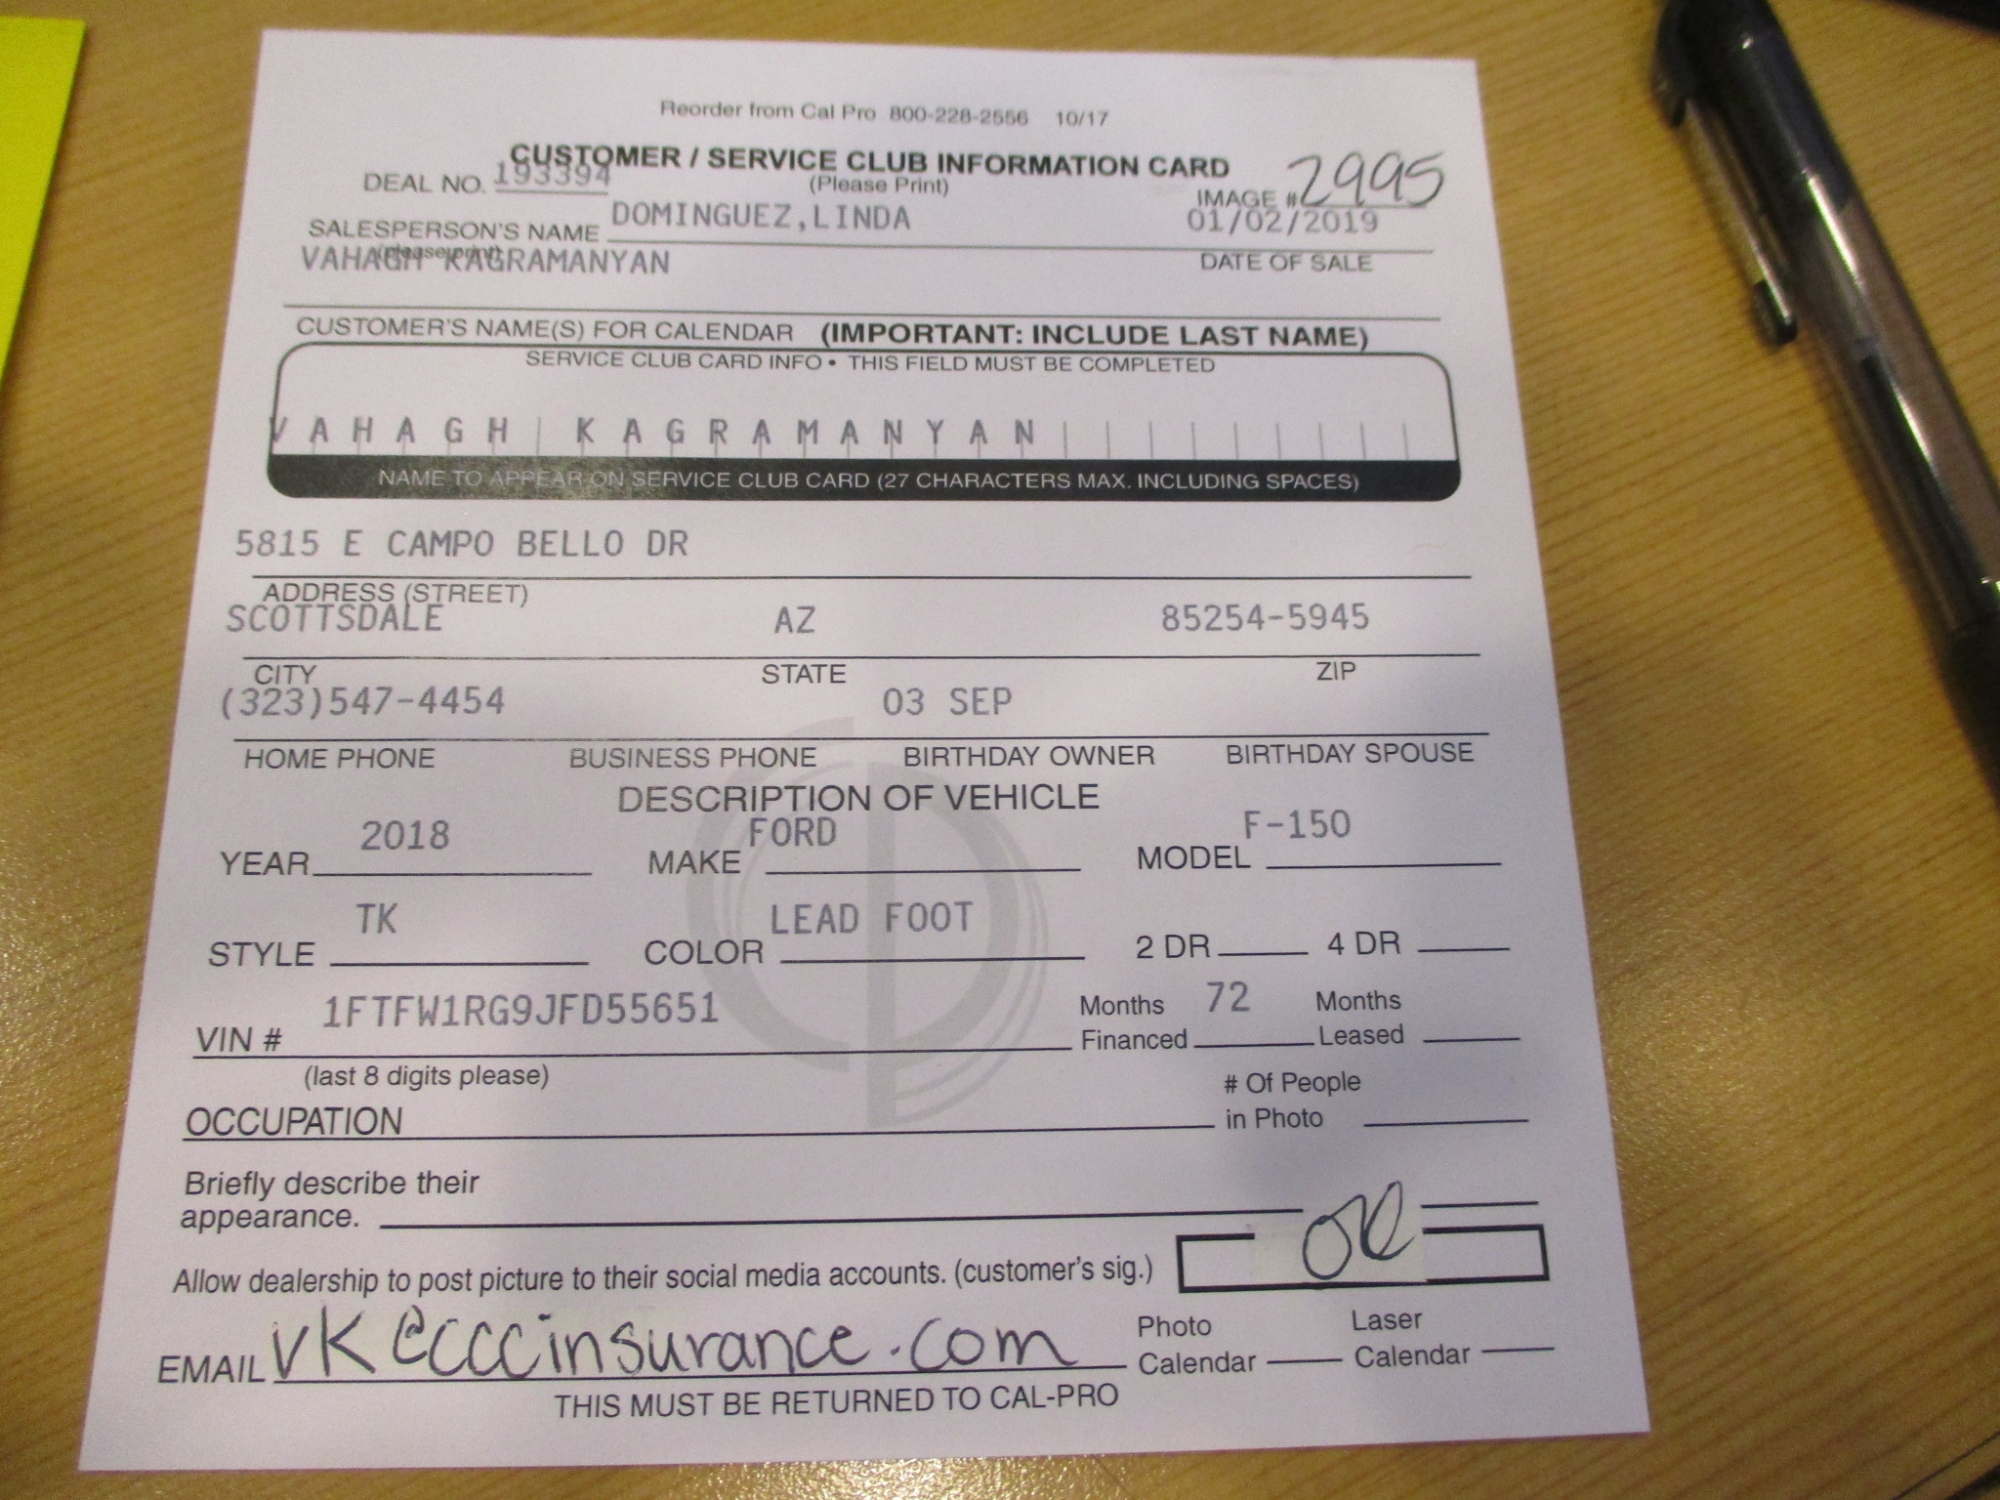 Reorder from Cal Pro 800-228-2556 10/17
CUSTOMER / SERVICE CLUB INFORMATION CARD
(Please Print)
DEAL NO. 193394
IMAGE # 2995
SALESPERSON'S NAME DOMINGUEZ,LINDA 01/02/2019
(please print)
VAHAGH KAGRAMANYAN
DATE OF SALE
CUSTOMER'S NAME(S) FOR CALENDAR (IMPORTANT: INCLUDE LAST NAME)
SERVICE CLUB CARD INFO • THIS FIELD MUST BE COMPLETED
VAHAGH KAGRAMANYAN
NAME TO APPEAR ON SERVICE CLUB CARD (27 CHARACTERS MAX. INCLUDING SPACES)
5815 E CAMPO BELLO DR
ADDRESS (STREET)
SCOTTSDALE AZ 85254-5945
CITY STATE ZIP
(323)547-4454 03 SEP
HOME PHONE BUSINESS PHONE BIRTHDAY OWNER BIRTHDAY SPOUSE
DESCRIPTION OF VEHICLE
YEAR 2018 MAKE FORD MODEL F-150
STYLE TK COLOR LEAD FOOT 2 DR 4 DR
VIN # 1FTFW1RG9JFD55651
Months Financed 72 Months Leased
(last 8 digits please)
OCCUPATION
# Of People in Photo
Briefly describe their
appearance.
Allow dealership to post picture to their social media accounts. (customer's sig.)
EMAIL vk@cccinsurance.com
Photo Calendar Laser Calendar
THIS MUST BE RETURNED TO CAL-PRO